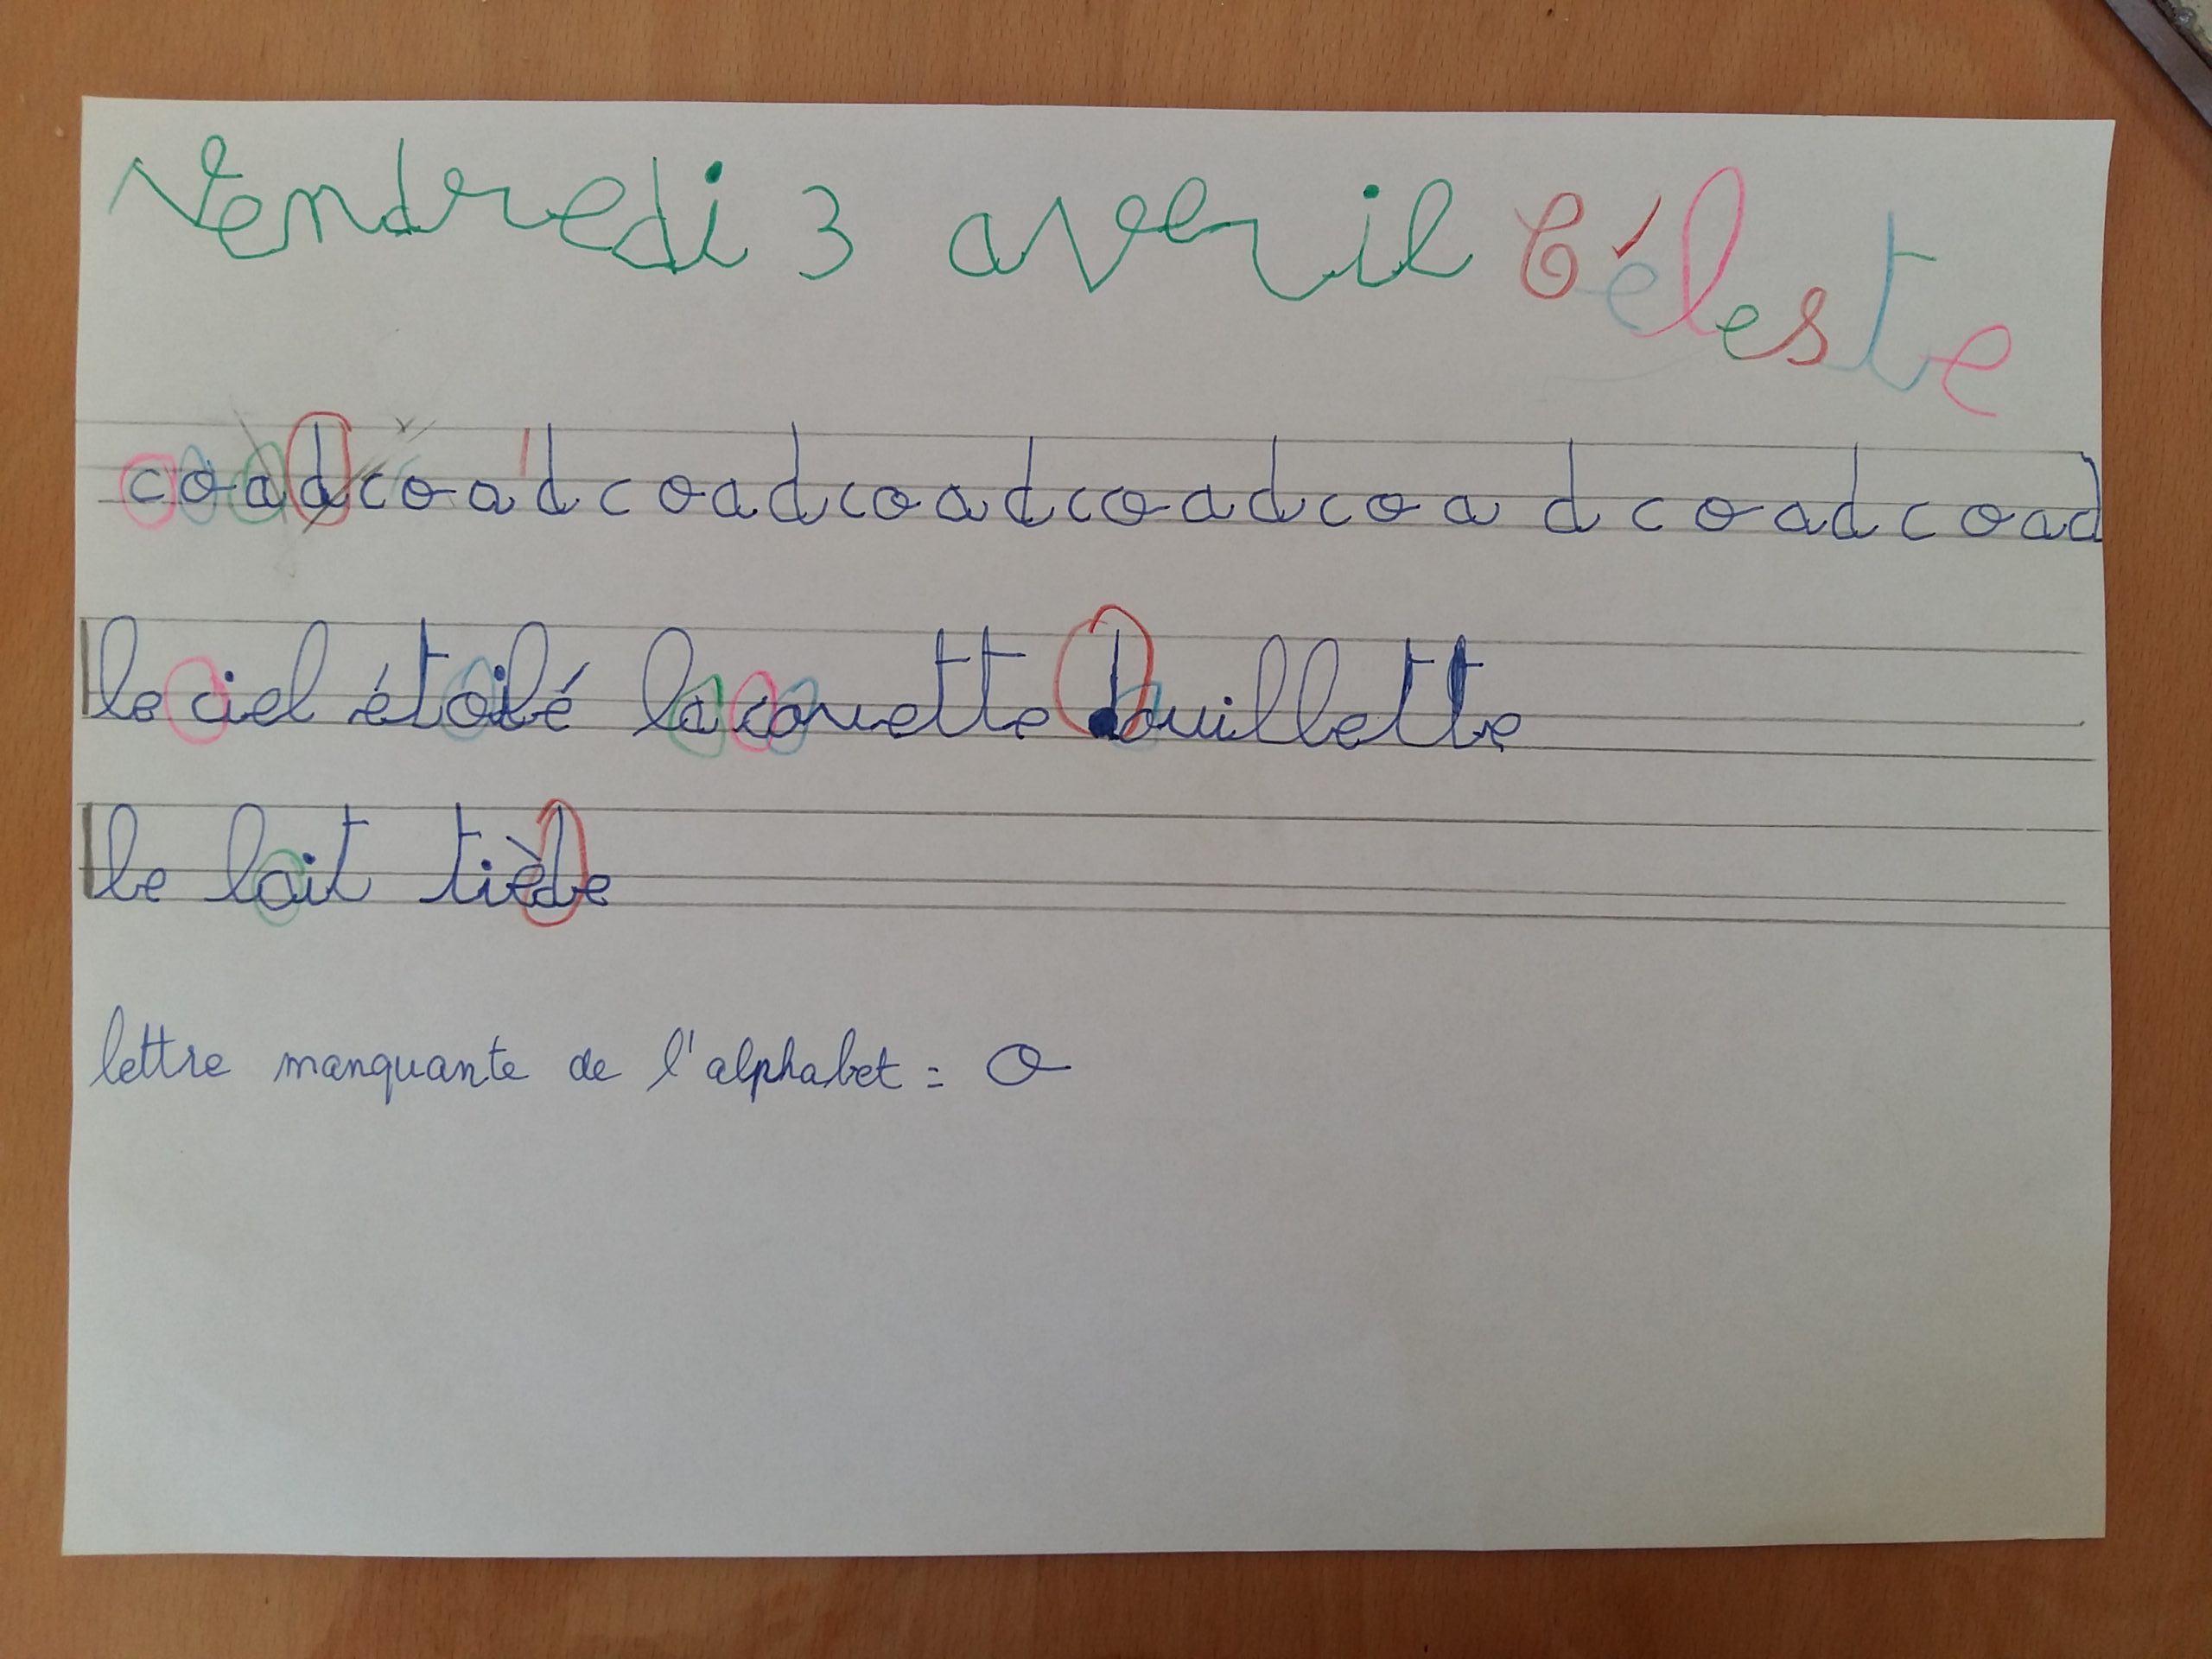 Vendredi 3 averil Céleste
coad coad coad coad coad coa d coad coad
le ciel étoilé la couette douillette
le lait tiède
lettre manquante de l'alphabet = o